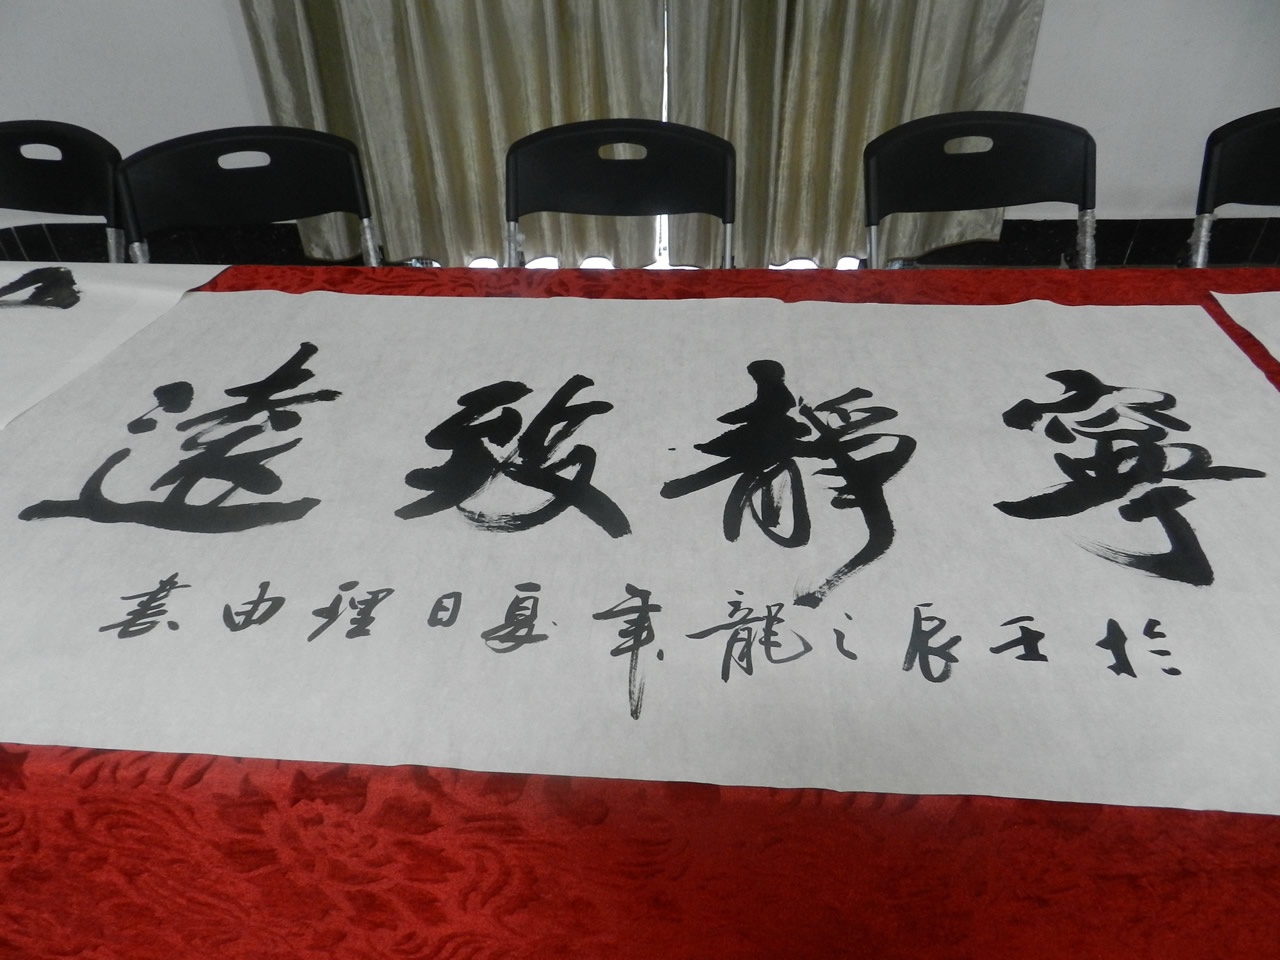 寧靜致遠
於壬辰之龍年夏日理由書